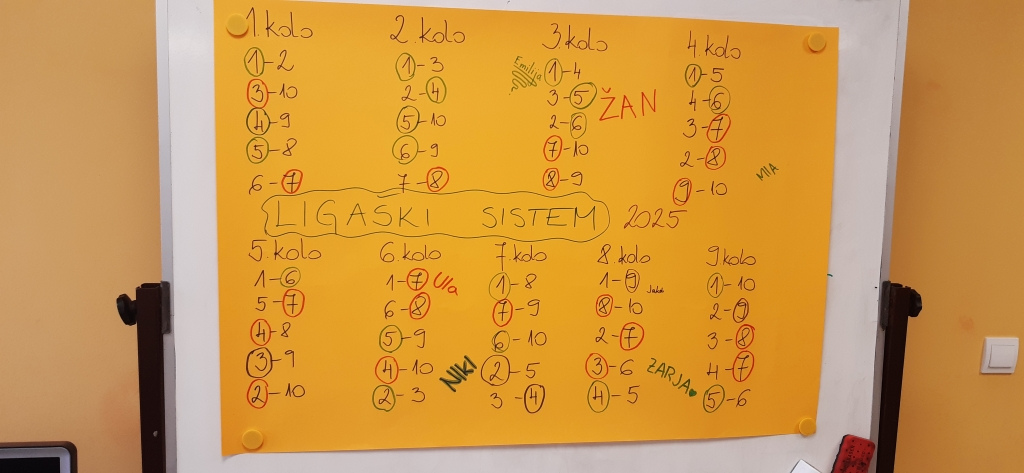 1. kolo
1-2
3-10
4-9
5-8
6-7
2. kolo
1-3
2-4
5-10
6-9
7-8
3. kolo
Emilija
1-4
3-5
2-6
7-10
8-9
ŽAN
4. kolo
1-5
4-6
3-7
2-8
9-10
MIA
LIGAŠKI SISTEM 2025
5. kolo
1-6
5-7
4-8
3-9
2-10
6. kolo
1-7 Ula
6-8
5-9
4-10
2-3
NIKI
7. kolo
1-8
7-9
6-10
2-5
3-4
8. kolo
1-9
8-10
2-7
3-6
4-5
ŽARJA
9. kolo
1-10
2-9
3-8
4-7
5-6